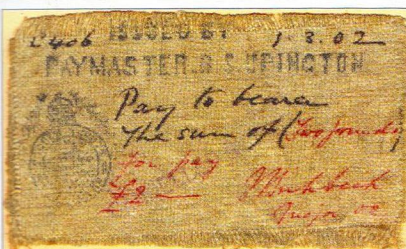 £406 ISSUED BY 1.3.02
PAYMASTER.B.S.UPINGTON
Pay to bearer
the sum of (Two pounds)
for pay
£2 —
Major